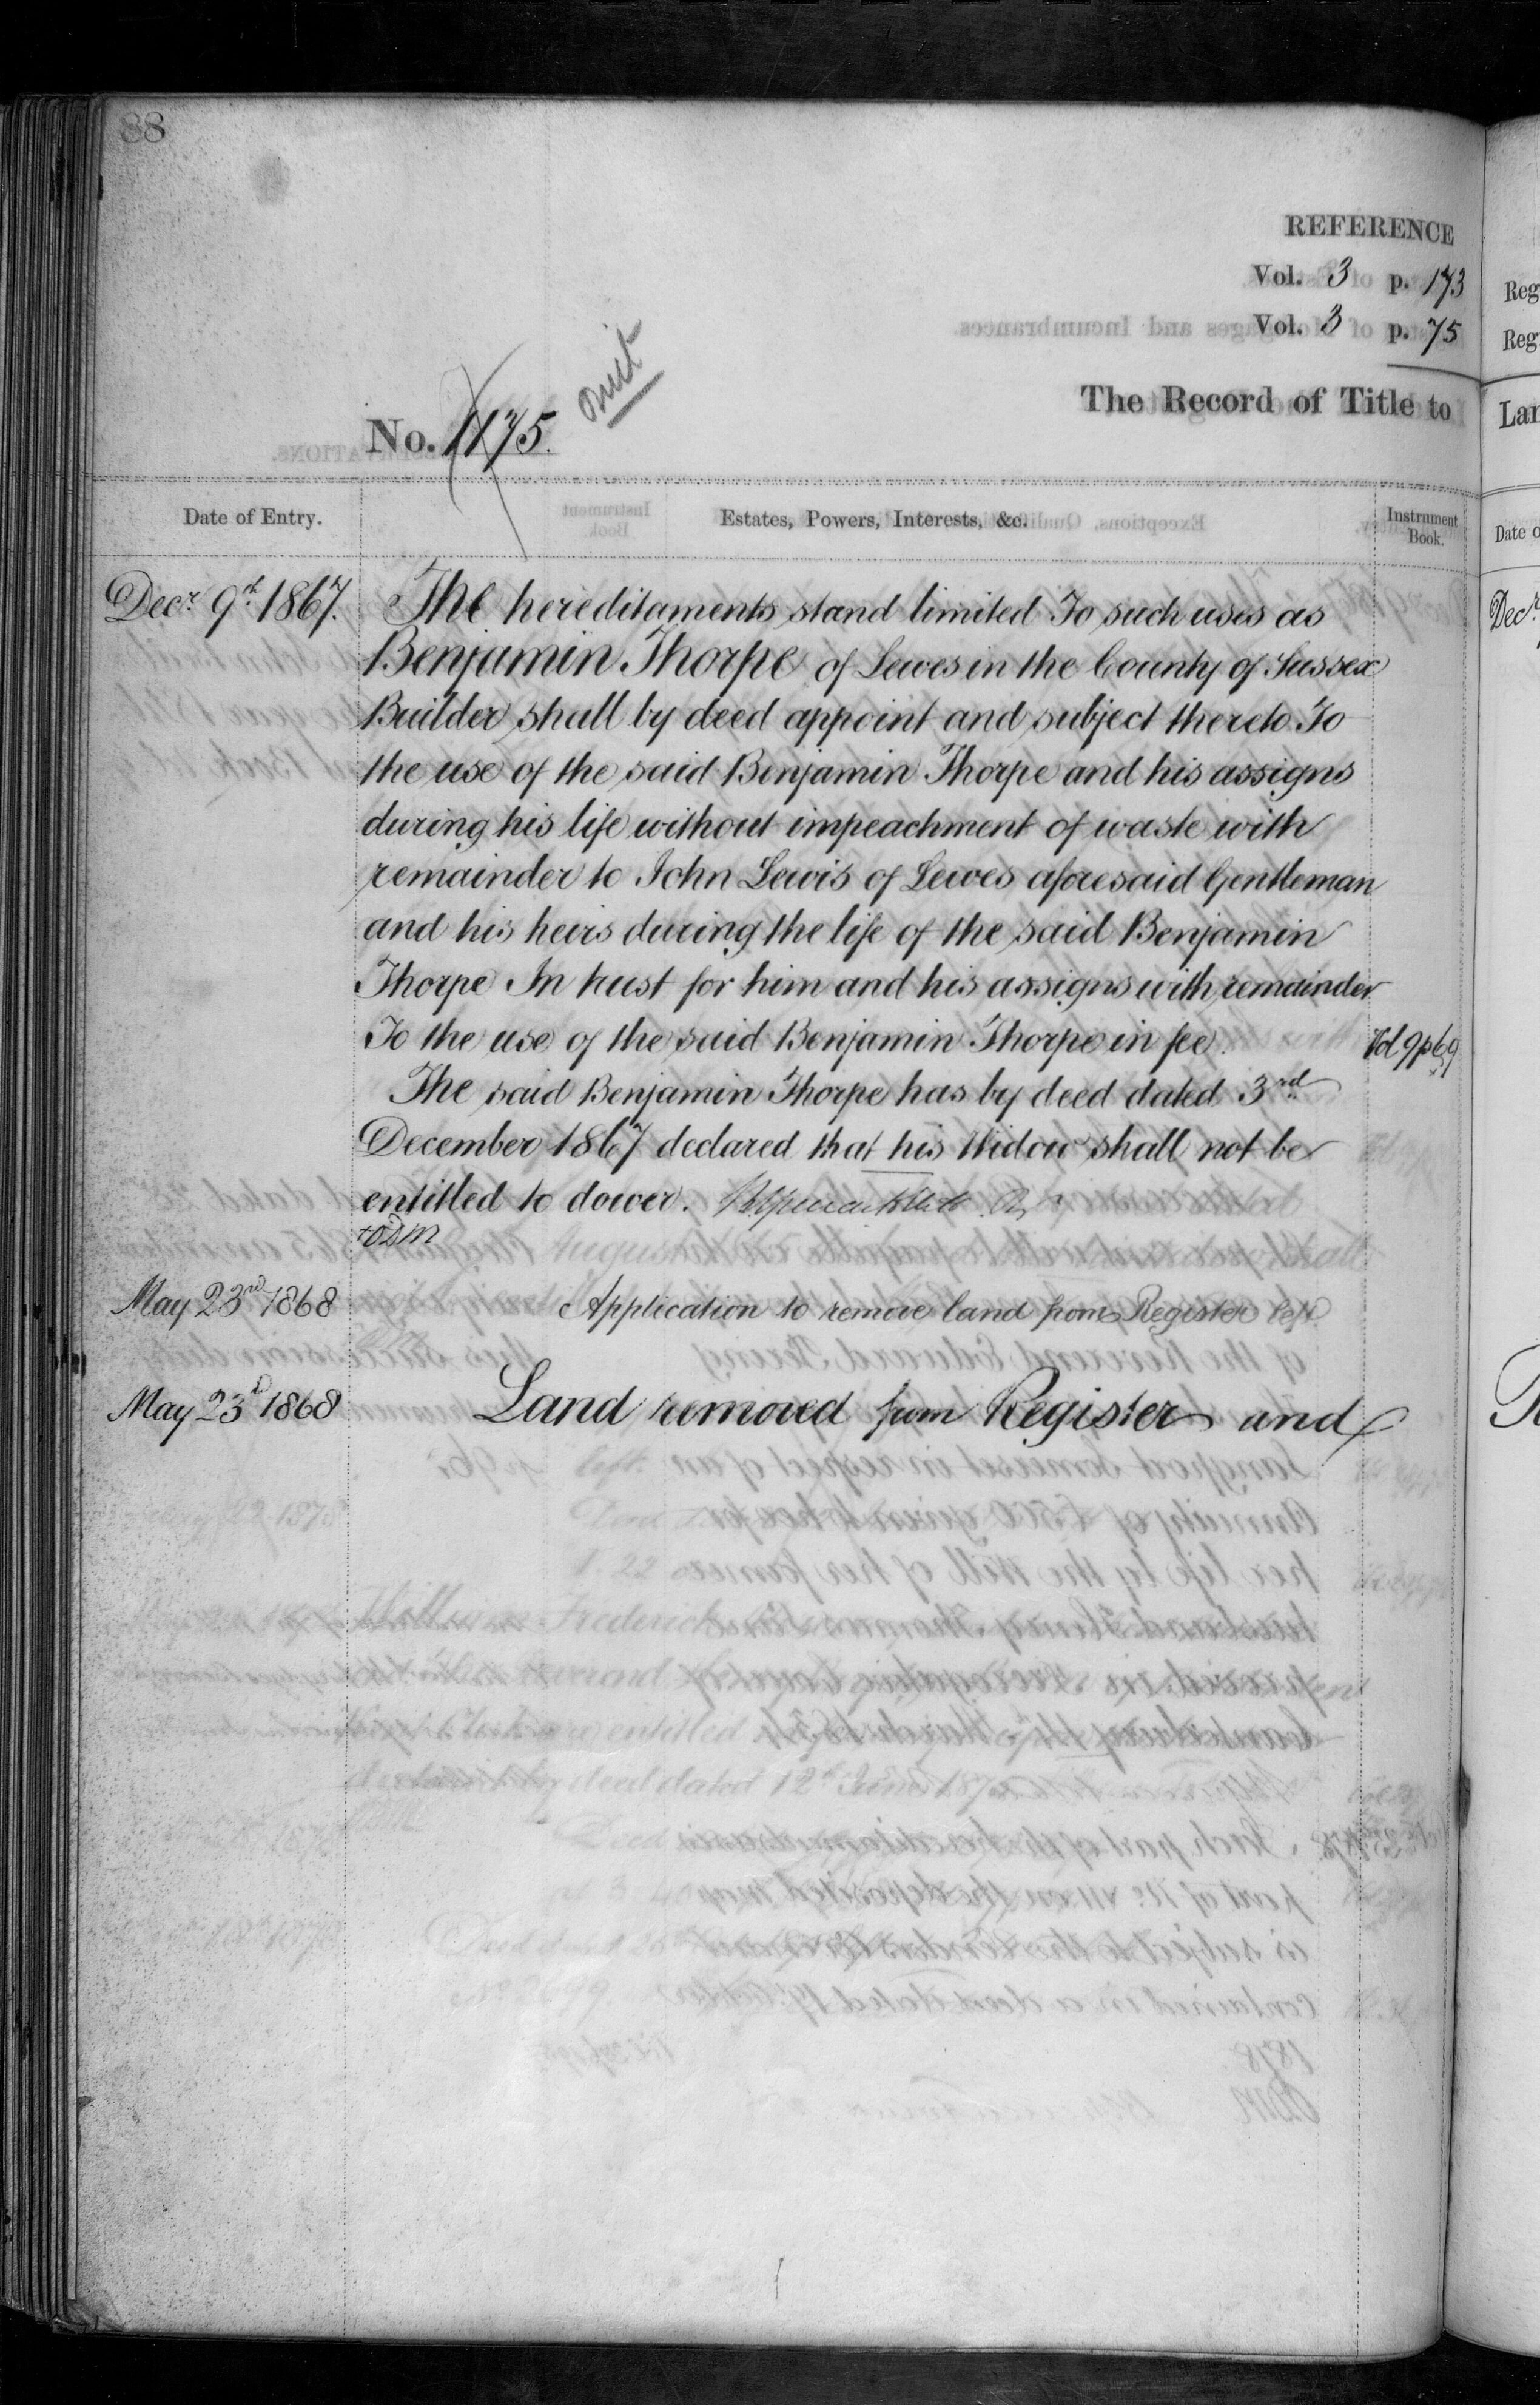 88
REFERENCE
Vol. 3 p. 173
Vol. 3 p. 75
The Record of Title to
No. 1175. Omit
Date of Entry. Estates, Powers, Interests, &c. Instrument Book.
Decr. 9th 1867. The hereditaments stand limited To such uses as
Benjamin Thorpe of Lewes in the County of Sussex
Builder shall by deed appoint and subject thereto To
the use of the said Benjamin Thorpe and his assigns
during his life without impeachment of waste with
remainder to John Lewis of Lewes aforesaid Gentleman
and his heirs during the life of the said Benjamin
Thorpe In trust for him and his assigns with remainder
To the use of the said Benjamin Thorpe in fee. Vol 9 p 69
The said Benjamin Thorpe has by deed dated 3rd
December 1867 declared that his Widow shall not be
entitled to dower.
May 23rd 1868 Application to remove land from Register left
May 23d 1868 Land removed from Register and
Reg
Reg
Lan
Date o
Decr